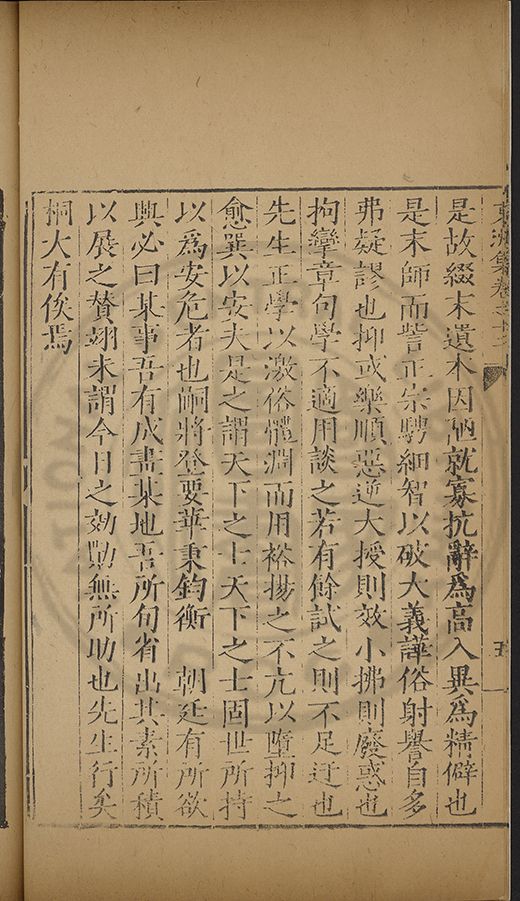 是故綴末遺本因陋就寡抗辭為高入異為精僻也
是末師而訾正宗騁細智以破大義譁俗射譽自多
弗疑謬也抑或樂順惡逆大授則效小拂則廢惑也
拘攣章句學不適用談之若有餘試之則不足迂也
先生正學以激俗體潤而用裕揚之不亢以墮抑之
愈巽以安夫是之謂天下之士天下之士固世所持
以為安危者也嗣將登要華秉鈞衡　朝廷有所欲
興必曰某事吾有成畫某地吾所句省出其素所積
以展之贊翊未謂今日之効勩無所助也先生行矣
桐大有俟焉
集卷之十二
五